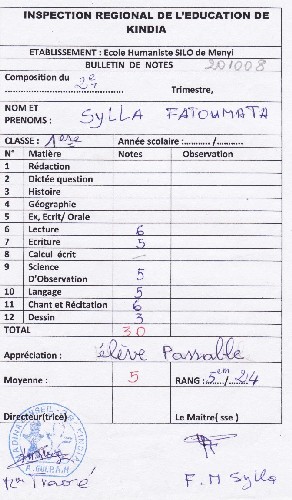 INSPECTION REGIONAL DE L'EDUCATION DE
KINDIA
ETABLISSEMENT : Ecole Humaniste SILO de Menyi
BULLETIN DE NOTES 201008
Composition du 2e
Trimestre,
NOM ET
PRENOMS : SYLLA FATOUMATA
CLASSE : 1ère Année scolaire :............/............
N° Matière Notes Observation
1 Rédaction
2 Dictée question
3 Histoire
4 Géographie
5 Ex, Ecrit/ Orale
6 Lecture 6
7 Ecriture 5
8 Calcul écrit –
9 Science
D'Observation 5
10 Langage 5
11 Chant et Récitation 6
12 Dessin 3
TOTAL 30
Appréciation : élève Passable
Moyenne : 5 RANG : 5em / 24
Directeur(trice) Le Maitre( sse )
Traoré F.M Sylla